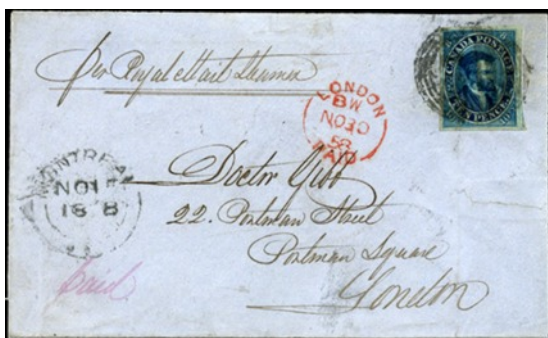 per Royal Mail Steamer
CANADA POSTAGE
TEN PENCE
LONDON
BW
NO30
58
PAID
MONTREAL
NO 1
18 8
Doctor Gibb
22. Portman Street
Portman Square
London
Paid